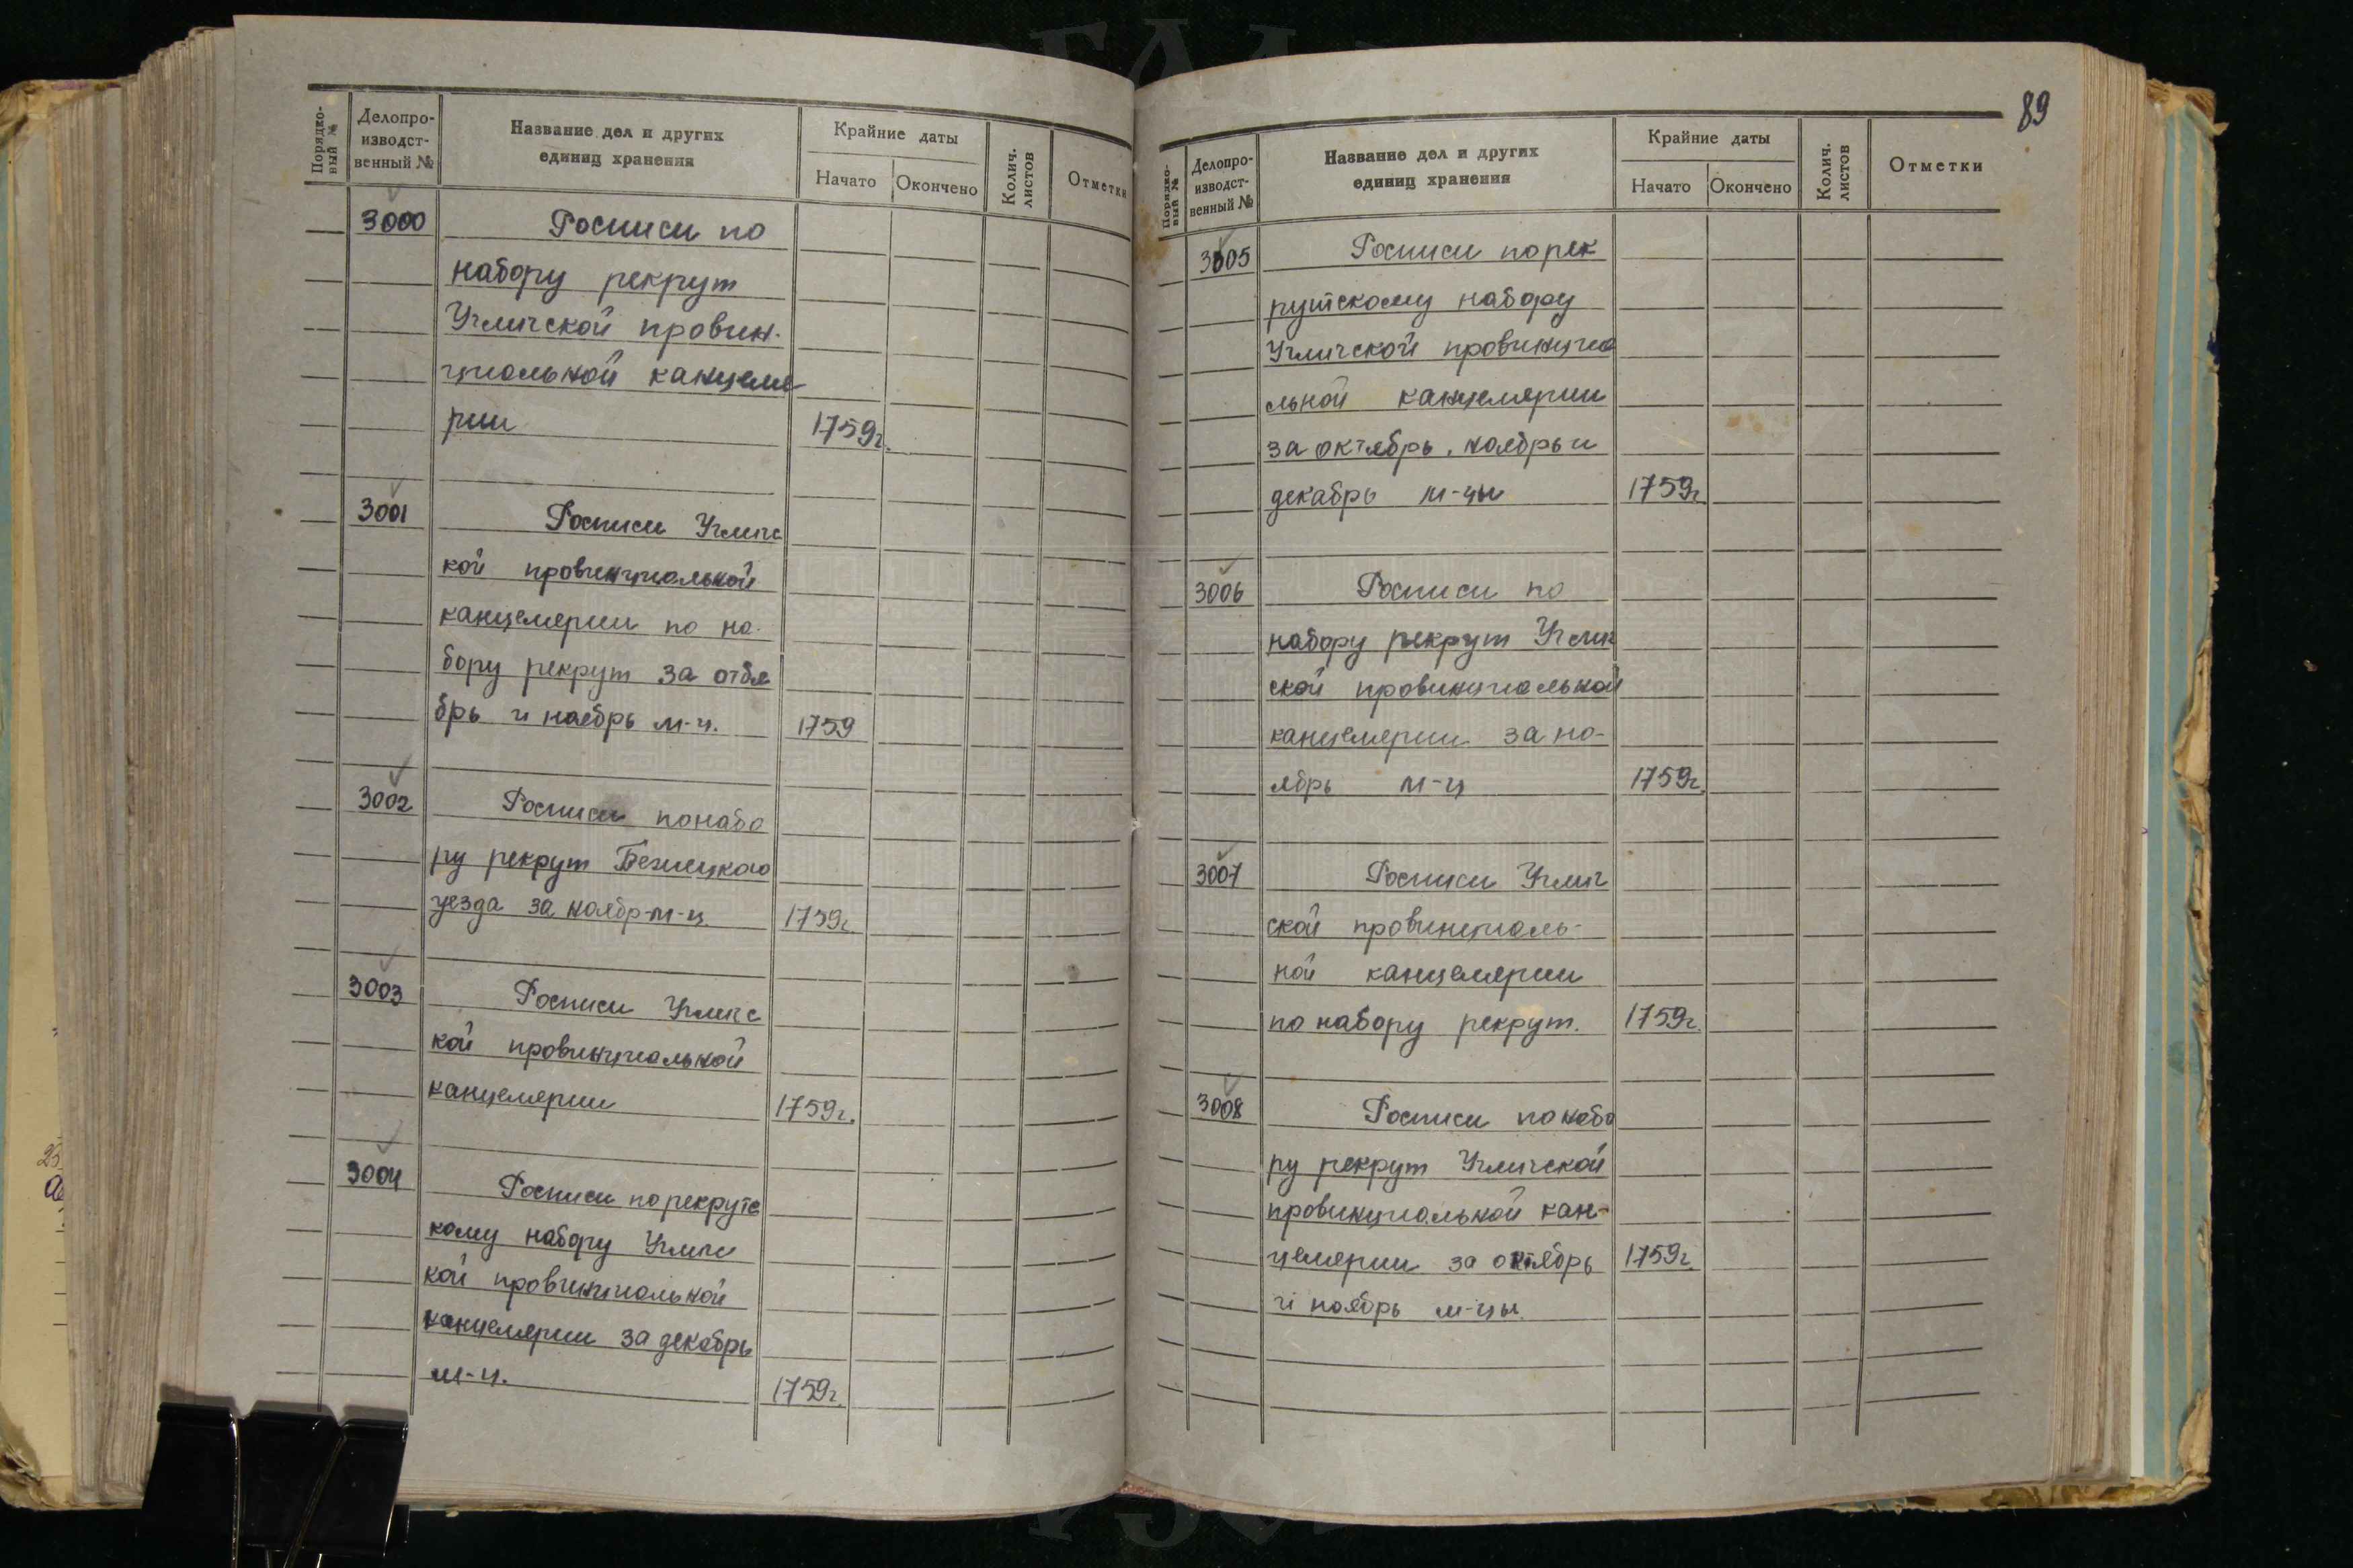 Порядко-
вый №
Делопро-
изводст-
венный №
Название дел и других
единиц хранения
Крайние даты
Начато
Окончено
Колич.
листов
Отметки
3000
Росписи по
набору рекрут
Угличской провин-
циальной канцеля-
рии
1759г.
3001
Росписи Угличс
кой провинциальной
канцелярии по на-
бору рекрут за
брь и ноябрь м-ц.
1759
3002
Росписи по набо
ру рекрут Бежецкого
уезда за ноябр-м-ц.
1759г.
3003
Росписи Угличс
кой провинциальной
канцелярии
1759г.
3004
Росписи по рекрутс
кому набору Угличс
кой провинциальной
канцелярии за декабрь
м-ц.
1759г.
89
Порядко-
вый №
Делопро-
изводст-
венный №
Название дел и других
единиц хранения
Крайние даты
Начато
Окончено
Колич.
листов
Отметки
3005
Росписи по рек
рутскому набору
Угличской провинциа
льной канцелярии
за октябрь, ноябрь и
декабрь м-цы
1759г.
3006
Росписи по
набору рекрут Углич
ской провинциальной
канцелярии за но-
ябрь м-ц
1759г.
3007
Росписи Углич
ской провинциаль-
ной канцелярии
по набору рекрут.
1759г.
3008
Росписи по набо
ру рекрут Угличской
провинциальной кан-
целярии за октябрь
1759г.
и ноябрь м-цы.